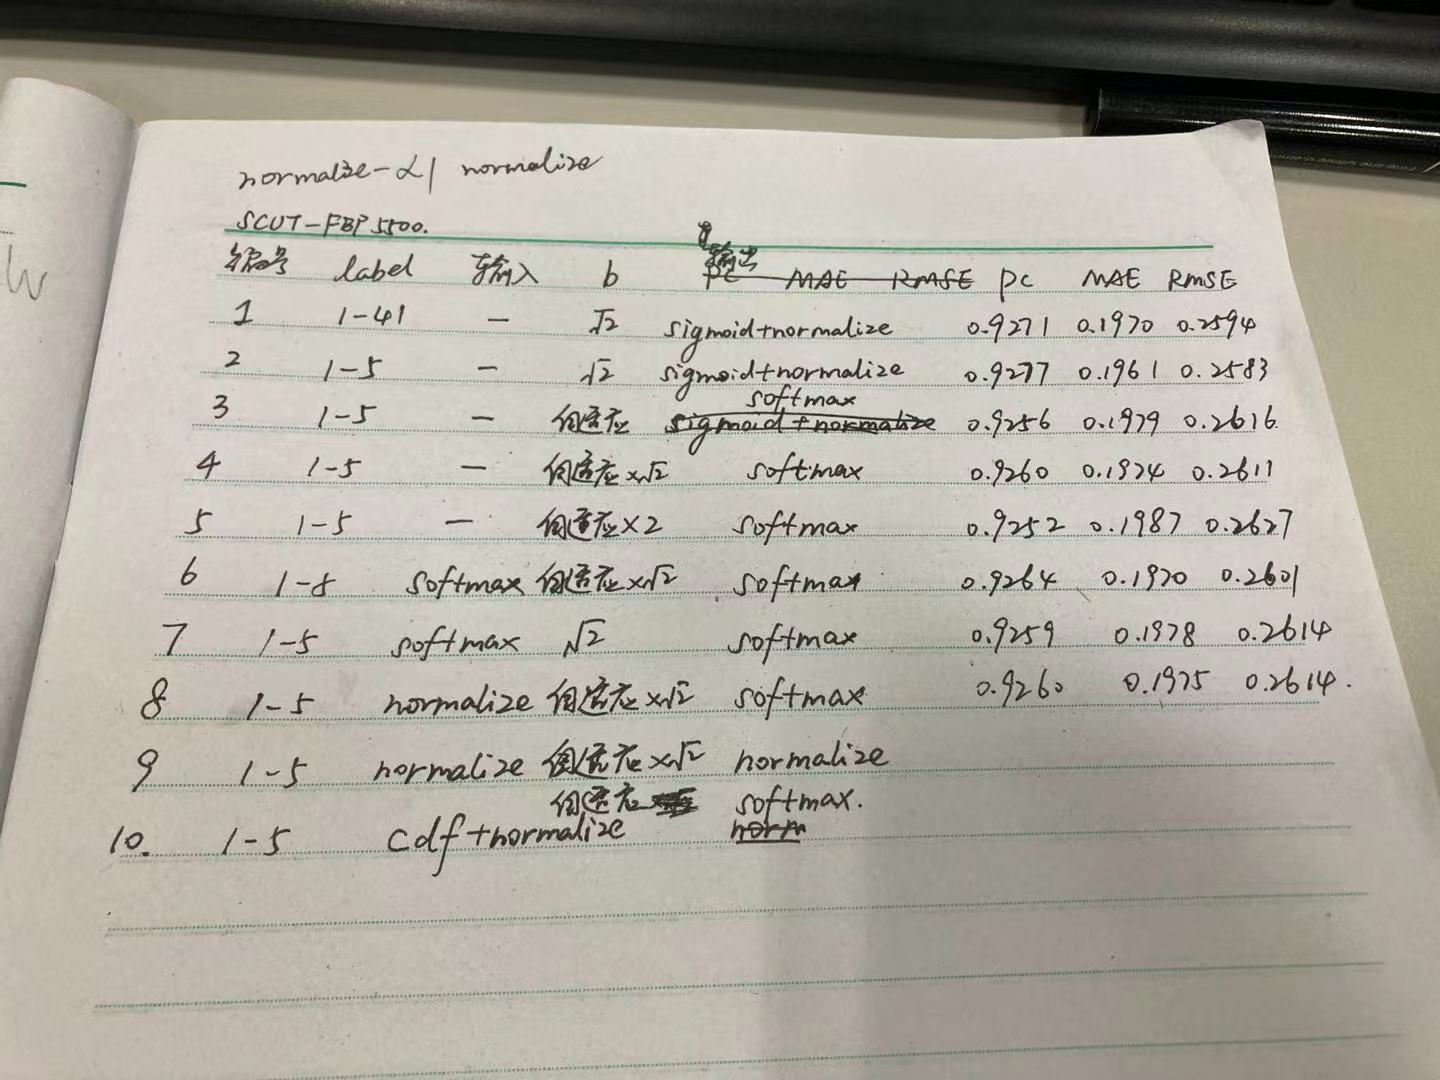 normalize-α| normalize
SCUT-FBP5500.
编号 label 输入 b 输出 PC MAE RMSE PC MAE RMSE
1 1-41 — √2 sigmoid+normalize 0.9271 0.1970 0.2594
2 1-5 — √2 sigmoid+normalize 0.9277 0.1961 0.2583
softmax
3 1-5 — 自适应 sigmoid+normalize 0.9256 0.1979 0.2616
4 1-5 — 自适应×√2 softmax 0.9260 0.1974 0.2611
5 1-5 — 自适应×2 softmax 0.9252 0.1987 0.2627
6 1-5 softmax 自适应×√2 softmax 0.9264 0.1970 0.2601
7 1-5 softmax √2 softmax 0.9259 0.1978 0.2614
8 1-5 normalize 自适应×√2 softmax 0.9260 0.1975 0.2614.
9 1-5 normalize 自适应×√2 normalize
自适应 softmax.
10. 1-5 cdf+normalize norm